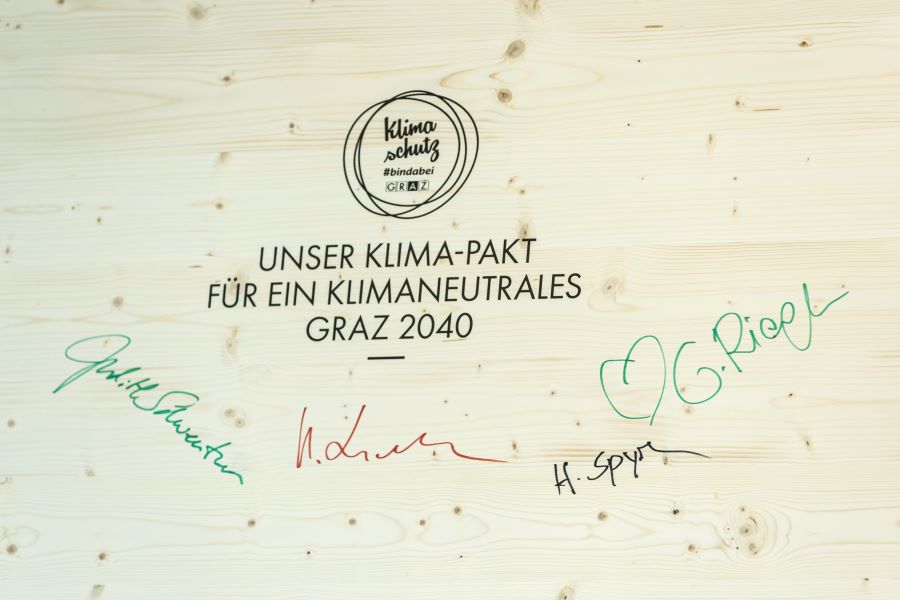 Klima
schutz
#bindabei
GRAZ
UNSER KLIMA-PAKT
FÜR EIN KLIMANEUTRALES
GRAZ 2040
Judith Schwentner
G. Riegler
H. Spyra